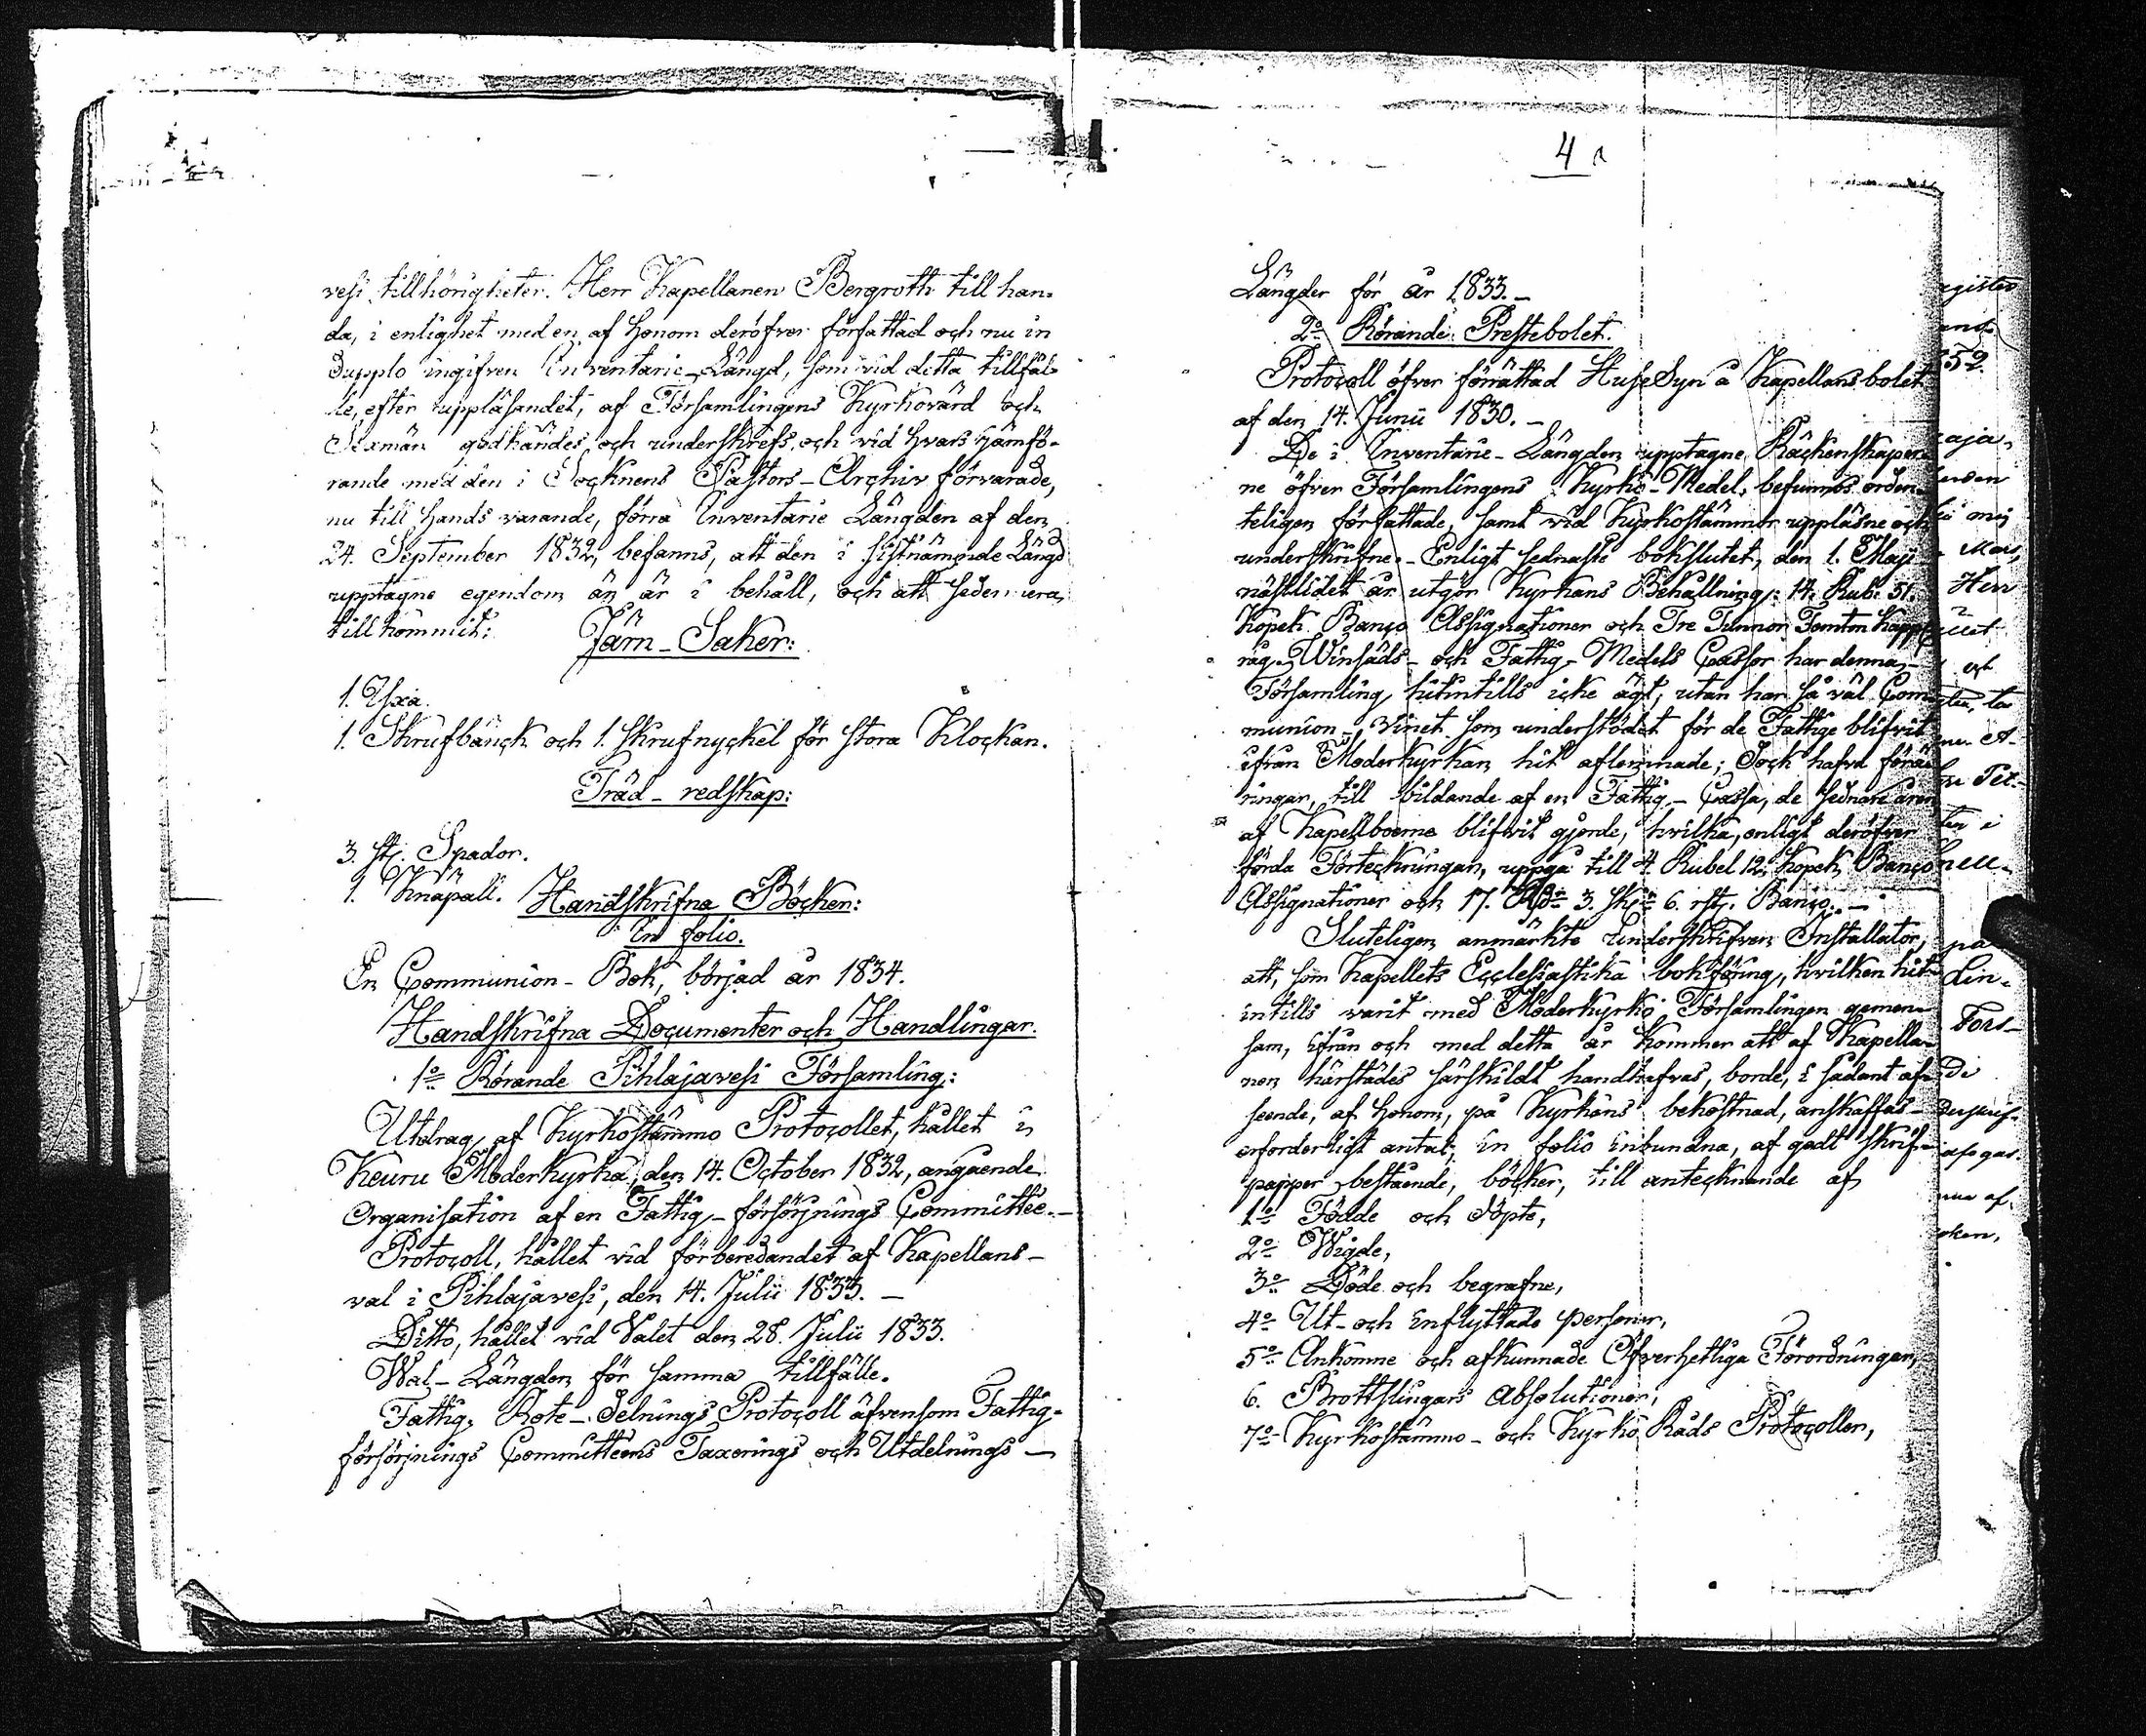 vesi tillhörigheter. Herr Kapellanen Bergroth till han-
da, i enlighet med en af honom deröfver författad och nu in
dupplo ingifven Inventarie-Längd, som vid detta tillfäl-
le, efter uppläsandet, af Församlingens Kyrkovärd och
Sexmän godkändes och underskrefs, och vid hvars jämfö-
rande med den i Socknens Pastors-Archiv förvarade,
nu till hands varande, förra Inventarie Längden af den
24. September 1832, befanns, att den i sistnämnde Längd
upptagne egendom än är i behåll, och att sedermera
tillkommit:
Järn-Saker:
1. Yxa.
1. Skrufbänck och 1. skrufnyckel för stora Klockan.
Träd-redskap:
3. st. Spador.
1. Knäpall.
Handskrifna Böcker:
In folio.
En Communion-Bok, börjad år 1834.
Handskrifna Documenter och Handlingar.
1º Rörande Pihlajavesi Församling:
Utdrag af Kyrkostämmo Protocollet, hållet i
Keuru Moderkyrka, den 14. October 1832, angående
Organisation af en Fattig-försörjnings Committée.-
Protocoll, hållet vid förberedandet af Kapellans-
val i Pihlajavesi, den 14. Julii 1833. -
Ditto, hållet vid Valet den 28. Julii 1833.
Wal-Längden för samma tillfälle.
Fattig- Rote-Delnings Protocoll äfvensom Fattig-
försörjnings Committéens Taxerings och Utdelnings -
4
Längder för år 1833. -
2º Rörande Prestebolet.
Protocoll öfver förrättad HuseSyn å Kapellansbolet
af den 14. Junii 1830. -
De i Inventarie-Längden upptagne Räckenskaper-
ne öfver Församlingens Kyrko-Medel, befunnos orden-
teligen författade, samt vid Kyrkostämmor uppläsne och
underskrifne. Enligt sednaste bokslutet, den 1. Maji
nästlidet år utgör Kyrkans Behållning: 14. Rub: 51.
Kopek Banco Assignationer och Tre Tunnor Femton Kapp
råg. Winsäds- och Fattig-Medels Cassor har denna
Församling hitintills icke ägt, utan har så väl Com-
munion-Vinet som understödet för de Fattige blifvit
ifrån Moderkyrkan hit aflemnade; Dock hafva förä-
ringar, till bildande af en Fattig-Cassa, de sednare åren
af Kapellboerne blifvit gjorde, hvilka, enligt deröfver
förda Förteckningar, uppgå till 4. Rubel 12. Kopek Banco
Assignationer och 17. Rdr 3. sk: 6. rst. Banco. -
Sluteligen anmärkte Underskrifven Installator,
att, som Kapellets Ecclesiastika bokföring, hvilken hit-
intills varit med Moderkyrko Församlingen gemen-
sam, ifrån och med detta år kommer att af Kapella-
nen härstädes särskildt handhafvas, borde, i sådant af-
seende, af honom, på Kyrkans bekostnad, anskaffas
erforderligt antal, in folio inbundna, af godt skrif-
papper bestående, böcker, till antecknande af
1º Födde och döpte,
2º Wigde,
3º Döde och begrafne,
4º Ut- och Inflyttade personer,
5º Ankomne och afkunnade Öfverhetliga Förordningar,
6. Brottslingars Absolutioner,
7º Kyrkostämmo- och Kyrko Råds Protocoller,